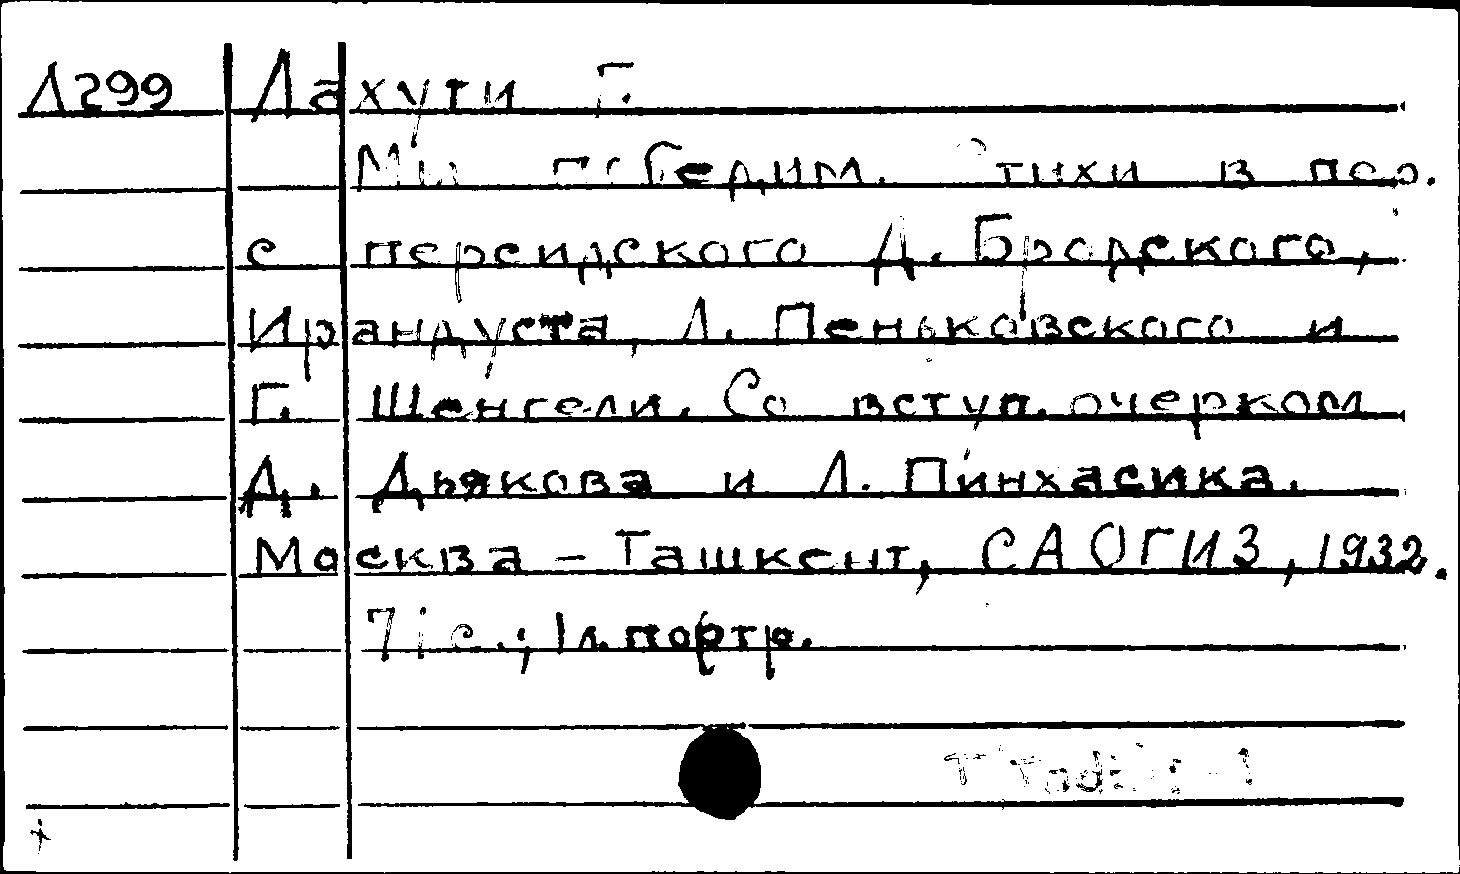 Л299 Лахути Г.
Мы победим. Стихи в пер.
с персидского Д. Бродского,
Ирандуста, Л. Пеньковского и
Г. Шенгели. Со вступ. очерком
Д. Дьякова и Л. Пинхасика.
Москва – Ташкент, САОГИЗ, 1932.
71 с.; 1 л. портр.